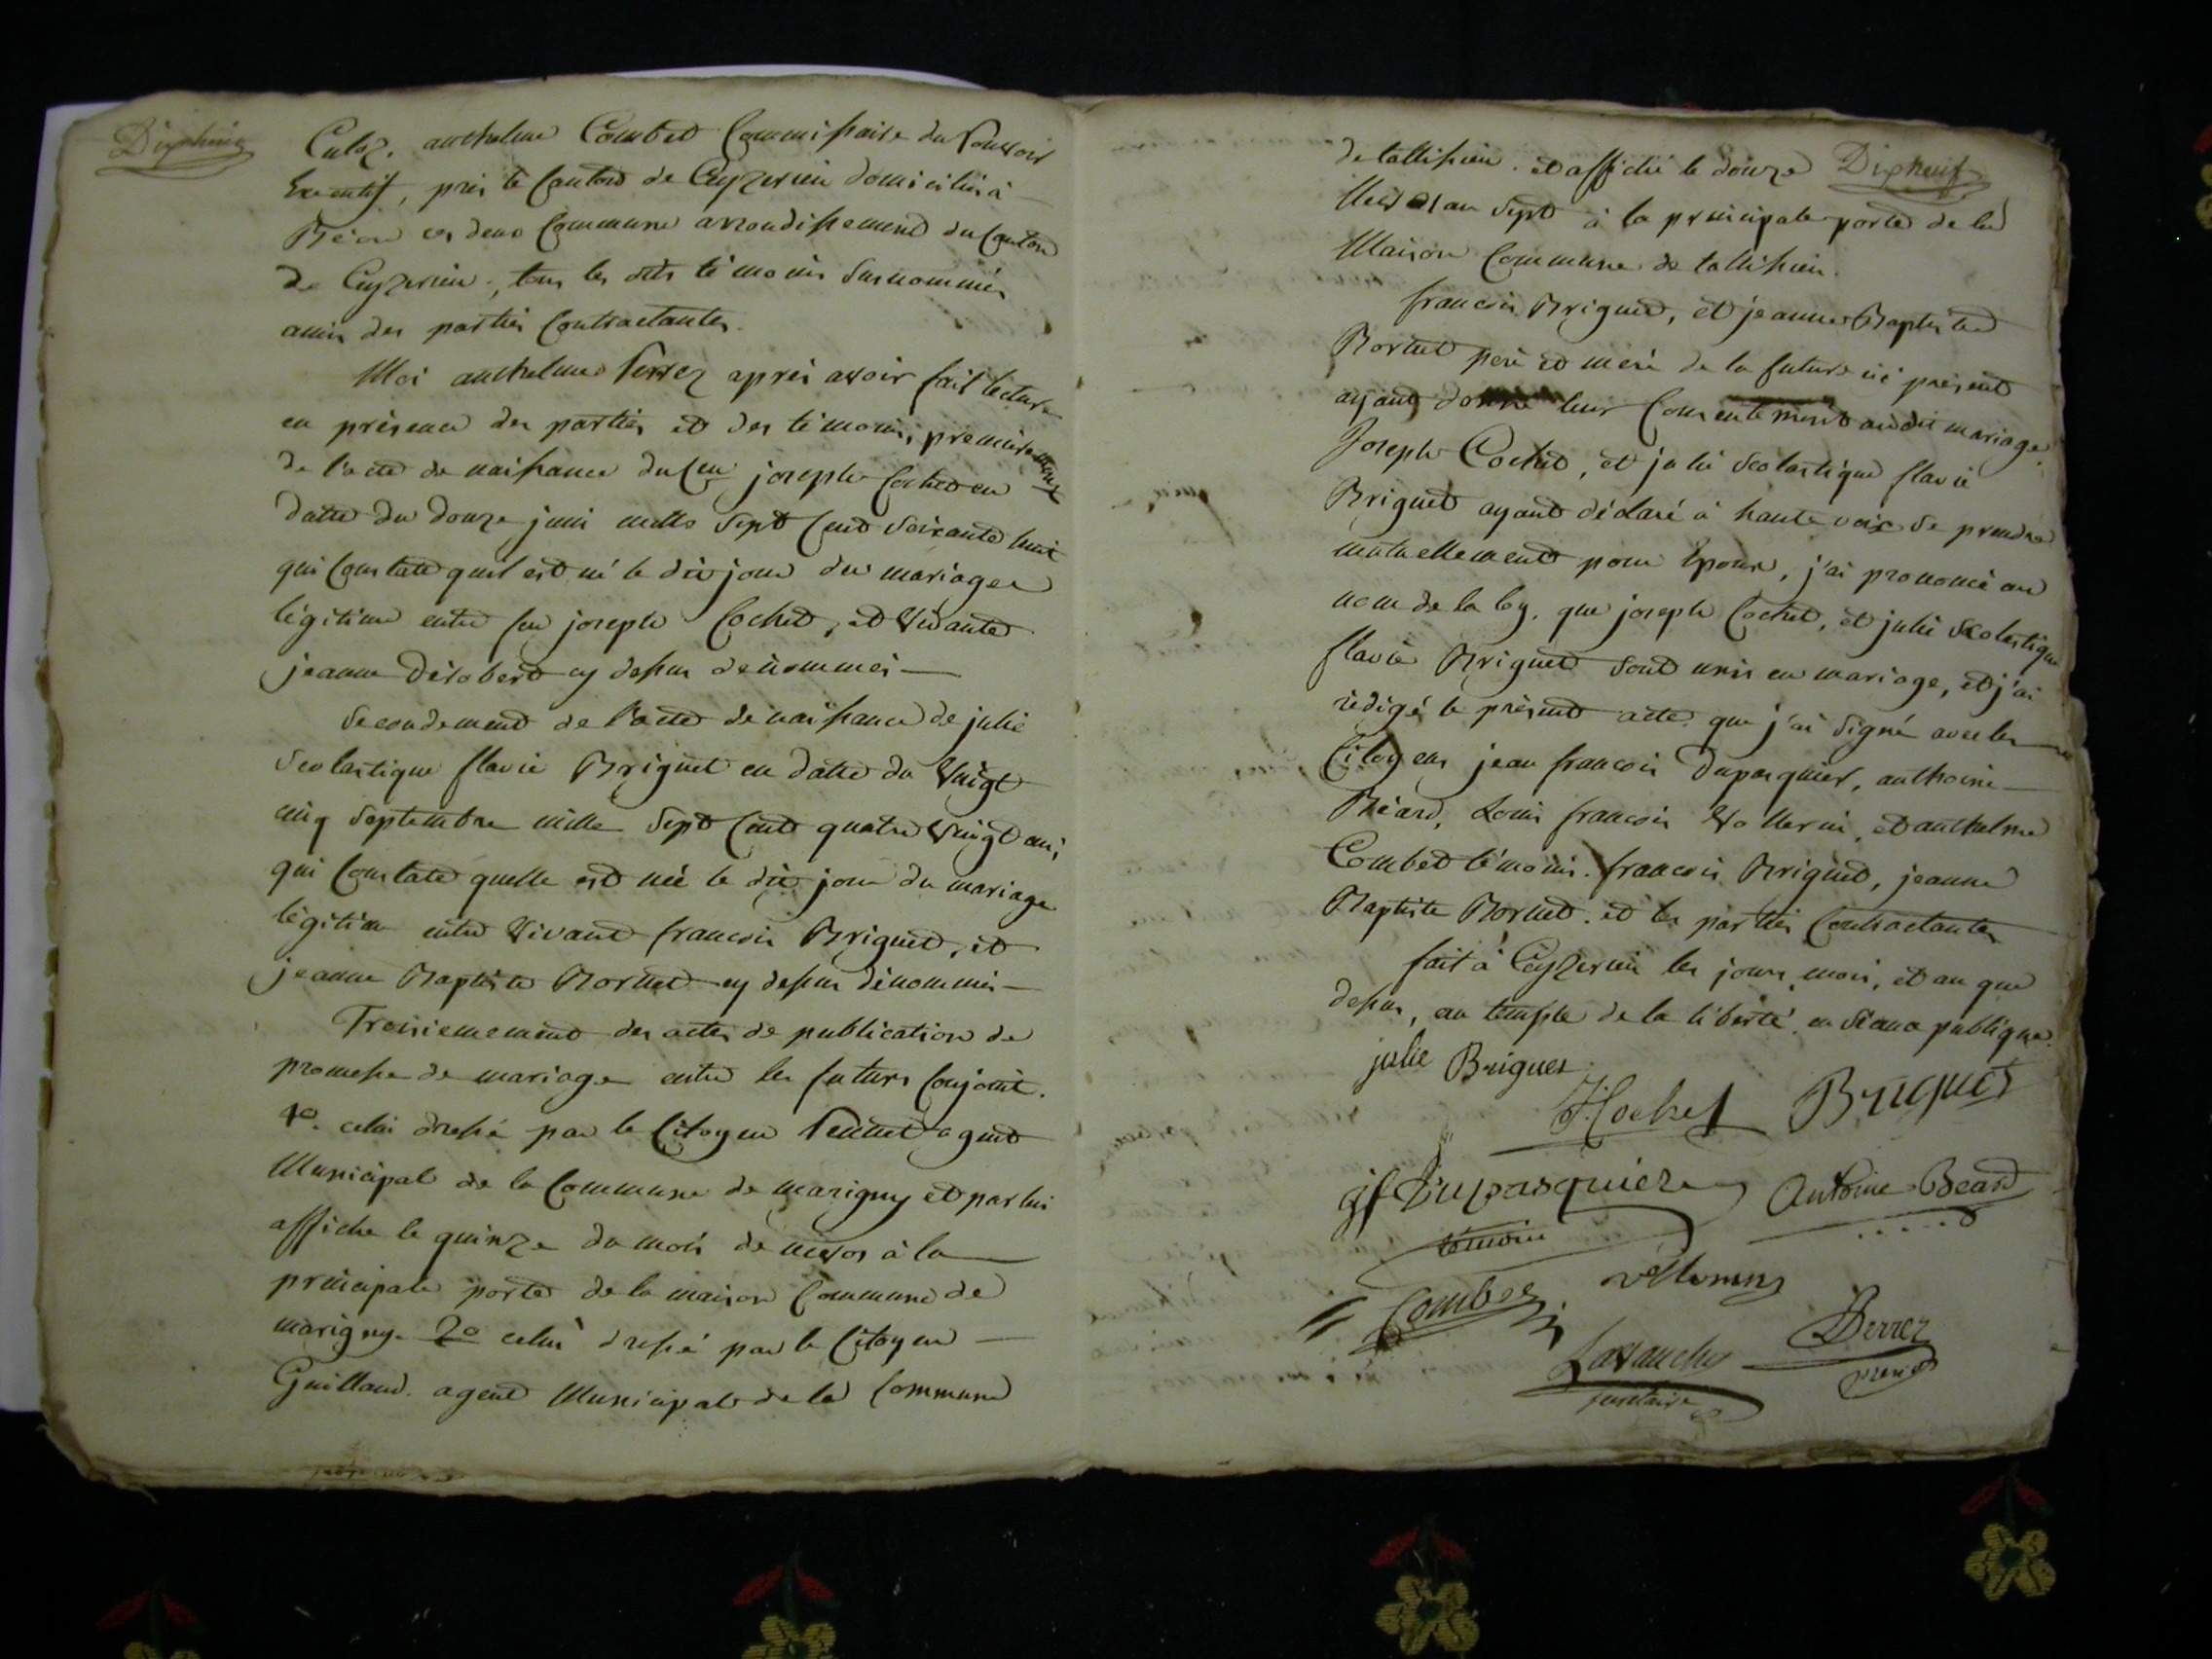 Dixhuit
Culoz. anthelme Combet Commissaire du Pouvoir
Executif, près le Canton de Ceyzerieu domicilié à
Béon ces deux Commune arrondissement du Canton
de Ceyzerieu, tous les dits témoins surnommés
amis des parties Contractantes.
Moi anthelme Perrez après avoir fait lecture
en présence des parties et des témoins, premièrement
de l'acte de naissance du Cen joseph Cochet en
datte du douze juin mille sept Cent soixante huit
qui Constate quil est né le dit jour du mariage
légitime entre feu joseph Cochet, et vivante
jeanne Dérobert cy dessus dénommés
Secondement de l'acte de naissance de julie
Scolastique flavie Briguet en datte du vingt
cinq septembre mille sept Cent quatre vingt un,
qui Constate quelle est née le dit jour du mariage
légitime entre vivant francois Briguet, et
jeanne Baptiste Bornet cy dessus dénommés
Troisiemement des actes de publication de
promesse de mariage entre les futurs Conjoint.
1o. celui dressé par le Citoyen agent
Municipal de la Commune de marigny et par lui
affiche le quinze du mois de nivos à la
principale porte de la maison Commune de
marigny. 2o celui dressé par le Citoyen
Guilland. agent Municipal de la Commune
de tallissieu. et affiché le douze Dixneuf
an sept à la principale porte de la
Maison Commune de tallissieu.
francois Briguet, et jeanne Baptiste
Bornet père et mère de la future ici présent
ayant donné leur Consentement audit mariage.
Joseph Cochet, et julie Scolastique flavie
Briguet ayant déclaré à haute voix se prendre
mutuellement pour Epoux, j'ai prononcé au
nom de la loy, que joseph Cochet, et julie Scolastique
flavie Briguet sont unis en mariage, et j'ai
rédigé le présent acte que j'ai signé avec les
Citoyens jean francois Dupasquier, anthoine
Béard, Louis francois Vollerin, et anthelme
Combet témoins. francois Briguet, jeanne
Baptiste Bornet. et les parties Contractantes
fait à Ceyzerieu les jours, mois, et an que
dessus, au temple de la liberté en séance publique.
julie Briguet
J. Cochet Briguet
jf Dupasquier Antoine Beard
témoin
Combet vollerin
Perrez
Lavanchy
secretaire